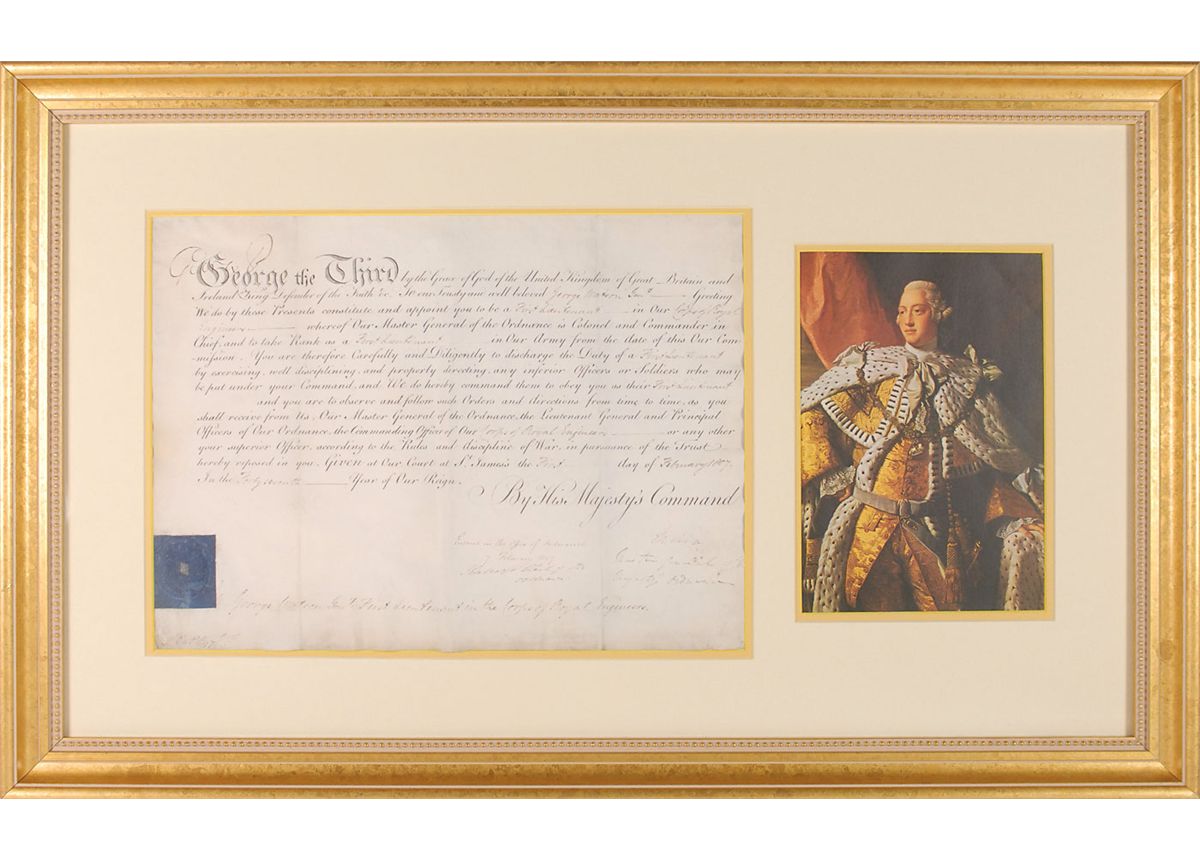 George the Third by the Grace of God of the United Kingdom of Great Britain and
Ireland King Defender of the Faith &c. To our Trusty and well beloved George Watson Gent Greeting
We do by these Presents constitute and appoint you to be a First Lieutenant in Our Corps of Royal
Engineers whereof Our Master General of the Ordnance is Colonel and Commander in
Chief, and to take Rank as a First Lieutenant in Our Army from the date of this Our Com-
mission. You are therefore Carefully and Diligently to discharge the Duty of a First Lieutenant
by exercising, well disciplining, and properly directing any inferior Officers or Soldiers who may
be put under your Command, and We do hereby command them to obey you as their First Lieutenant
and you are to observe and follow such Orders and directions from time to time, as you
shall receive from Us, Our Master General of the Ordnance, the Lieutenant General and Principal
Officers of Our Ordnance, the Commanding Officer of Our Corps of Royal Engineers or any other
your superior Officer, according to the Rules and discipline of War, in pursuance of the Trust
hereby reposed in you. Given at Our Court at St. James's the First day of February 1807.
In the Forty seventh Year of Our Reign.
By His Majesty's Command
George Watson Gent First Lieutenant in the Corps of Royal Engineers.